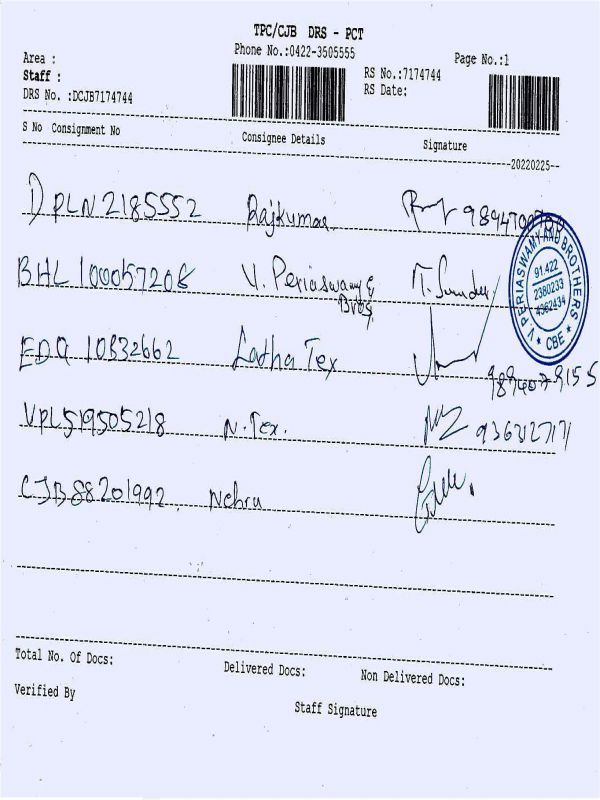 TPC/CJB DRS - PCT
Phone No.:0422-3505555
Page No.:1
Area :
Staff :
DRS No. :DCJB7174744
RS No.:7174744
RS Date:
S No Consignment No Consignee Details Signature
20220225
DPLN2185552 Rajkumar
BHL 100057208 V. Periaswamy & Bros T. Sunder
V. PERIASWAMY AND BROTHERS
91.422
2380233
4362434
CBE
EDQ 10832662 Latha Tex
VPL519505218 N.Tex.
CJB88201992 Nehru
Total No. Of Docs: Delivered Docs: Non Delivered Docs:
Verified By Staff Signature